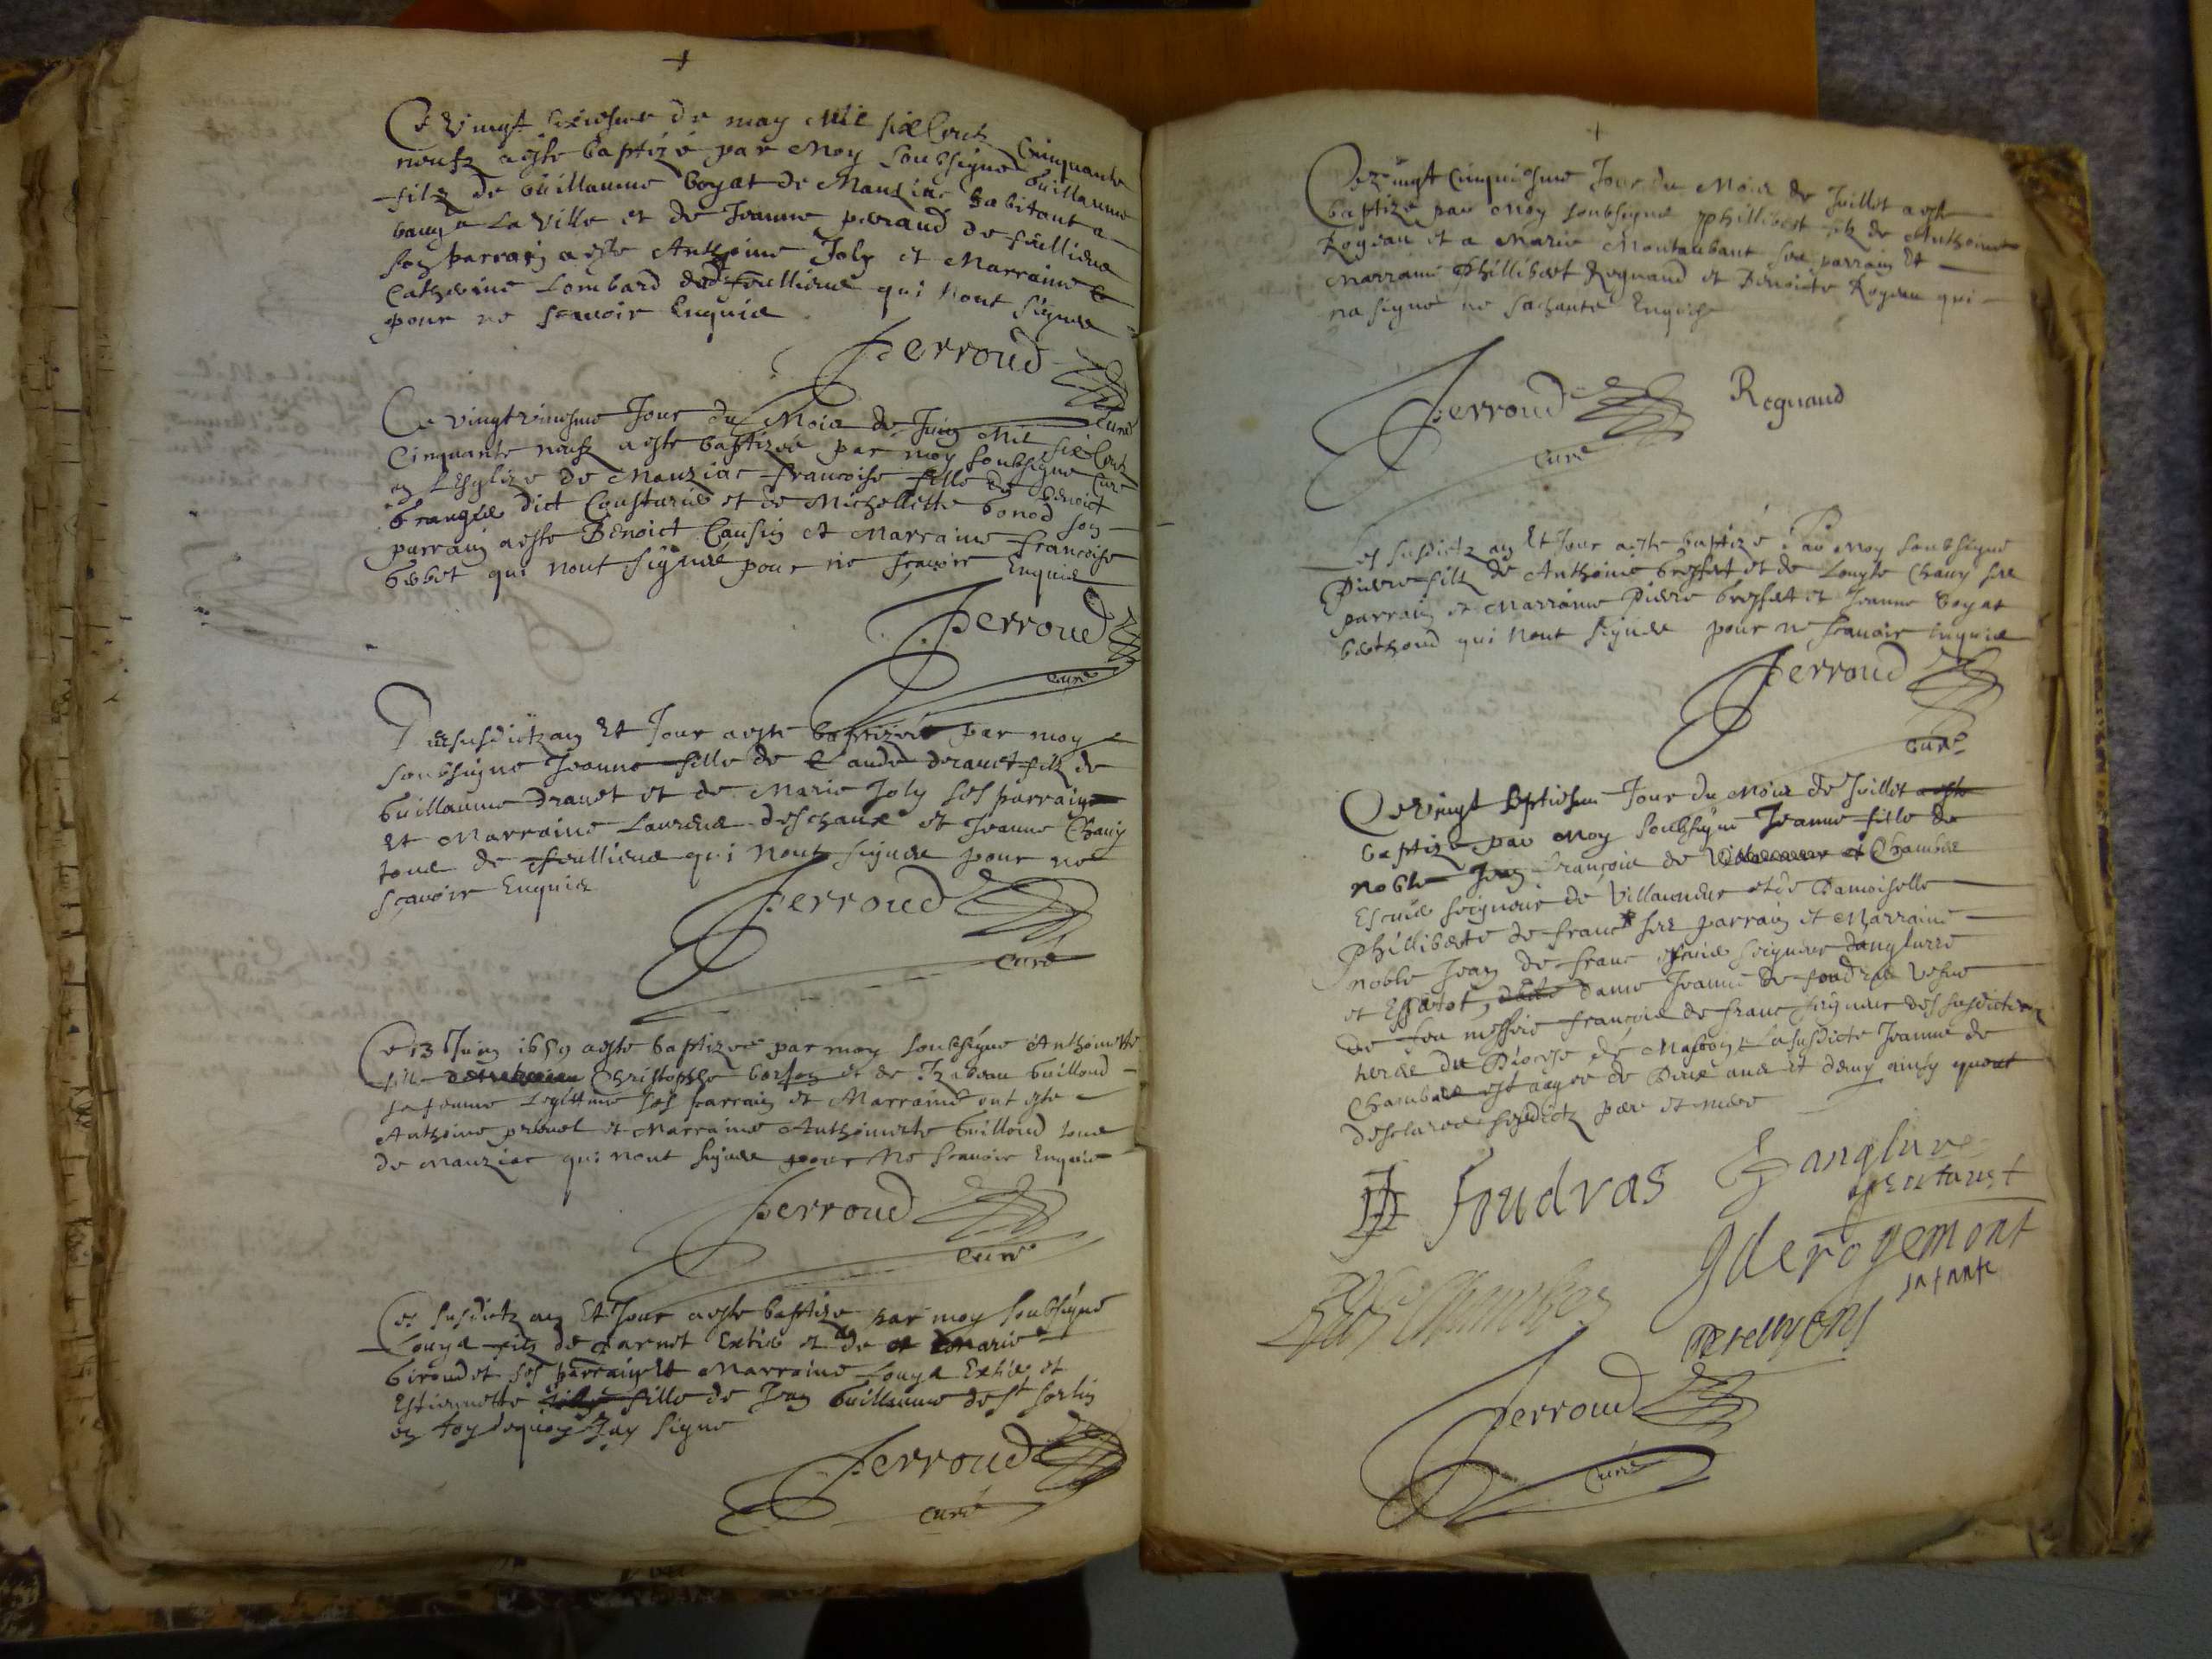 Ce vingt sixiesme de may Mil six Centz Cinquante
neufz a este baptizé par Moy soubsigné Guillaume
filz de Guillaume boyat de Manziac habitant a
baugé La Ville et de Jeanne peraud de feilliens
son parrain a este Anthoine Joly et Marraine
Catherine Lombard de feilliens qui nont signes
pour ne scavoir Enquis
Perroud
Curé
Ce vingtroiesme Jour du Mois de Juin Mil six Centz
Cinquante neufz a este baptizée par moy soubsigné Curé
en L'Esglize de Manziac francoise fille de benoict
brangier dict Cousturier et de Michellette bonod son
parrain a este Benoict Causin et Marraine francoise
bebet qui nont signés pour ne scavoir Enquis
Perroud
curé
Les susdictz an Et Jour a este baptizée par moy
soubsigne Jeanne fille de Claude drauet filz de
Guillaume drauet et de Marie Joly ses parrain
Et Marraine Laurens deschaux et Jeanne Chany
tous de feilliens qui nont signes pour ne
scavoir Enquis
Perroud
Curé
Ce 13 Juin 1659 a este baptizée par moy soubsigne Anthoinette
fille Christophle et de Izabeau Guilloud
sa femme Legittime ses parrain et Marraine ont este
Anthoine et Marraine Anthoinette Guilloud tous
de manziac qui nont signes pour Ne scavoir Enquis
Perroud
curé
Les susdictz an Et Jour a este baptize par moy soubsigné
Louys filz de et de Marie
Giroudet ses parrain Et Marraine Louys et
Estiennette fille de Jean Guillaume de St sorlin
en foy dequoy Jay signe
Perroud
curé
Ce vingt Cinquiesme Jour du Mois de Juillet a este
baptize par Moy soubsigné Phillibert filz de Anthoine
Royeau et a Marie Montaubant ses parrain Et
Marraine Phillibert Regnaud et Benoicte Royeau qui
na signé ne sachante Enquise
Perroud Regnaud
curé
Les susdictz an Et Jour a este baptizé Par Moy soubsigné
Pierre filz de Anthoine et de Louyse Chany ses
parrain et Marraine Pierre et Jeanne boyat
berthoud qui nont signes pour ne scavoir enquis
Perroud
curé
Ce vingt septiesme Jour du Mois de Juillet a este
baptize par Moy soubsigné Jeanne fille de
noble Jean François de Chambre
Escuier seigneur de Villeneuve et de Damoiselle
Philliberte de franc ses parrain et Marraine
noble Jean de franc escuier seigneur danglure
et Essertot, dame Jeanne de foudras vesve
de feu messire francois de franc seigneur des susdictes
terres du Diocese de Mascon Lasusdicte Jeanne de
Chambre est agée de Deux ans Et demy ainsy quont
desclarés sesdictz pere et mere
Foudras danglure
G de rogemont
Perroud
Curé